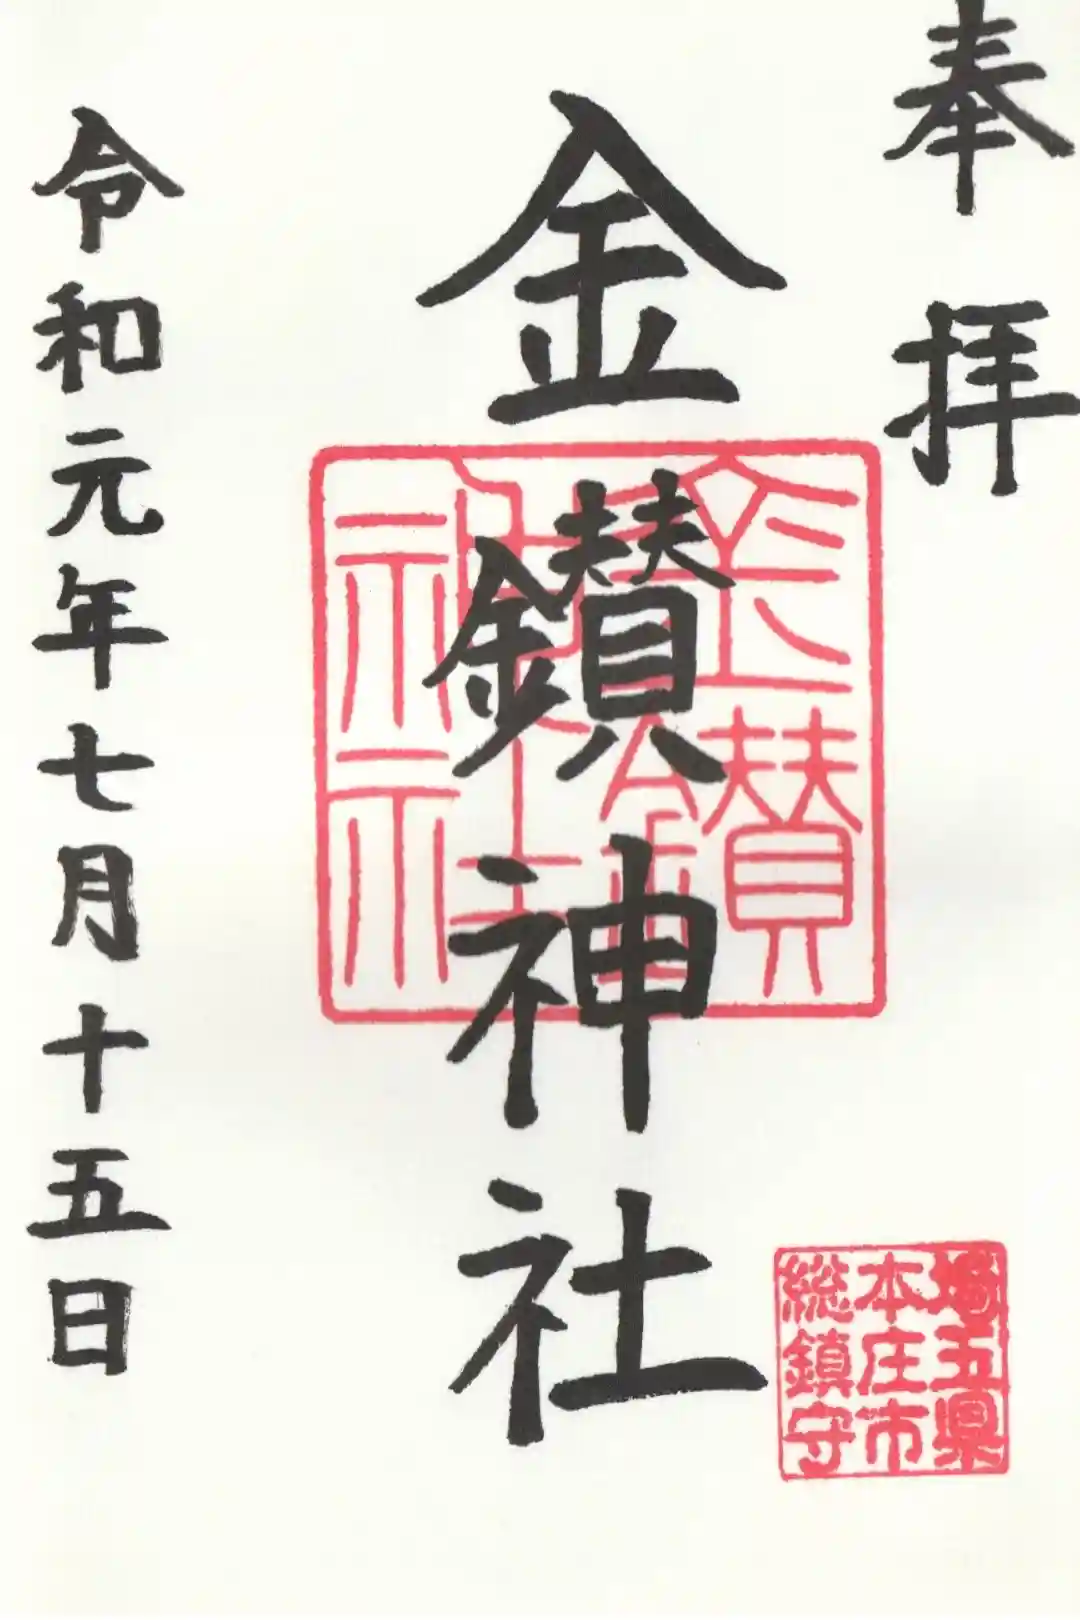 奉拝
金鑚神社
金鑚神社
令和元年七月十五日
埼玉県
本庄市
総鎮守